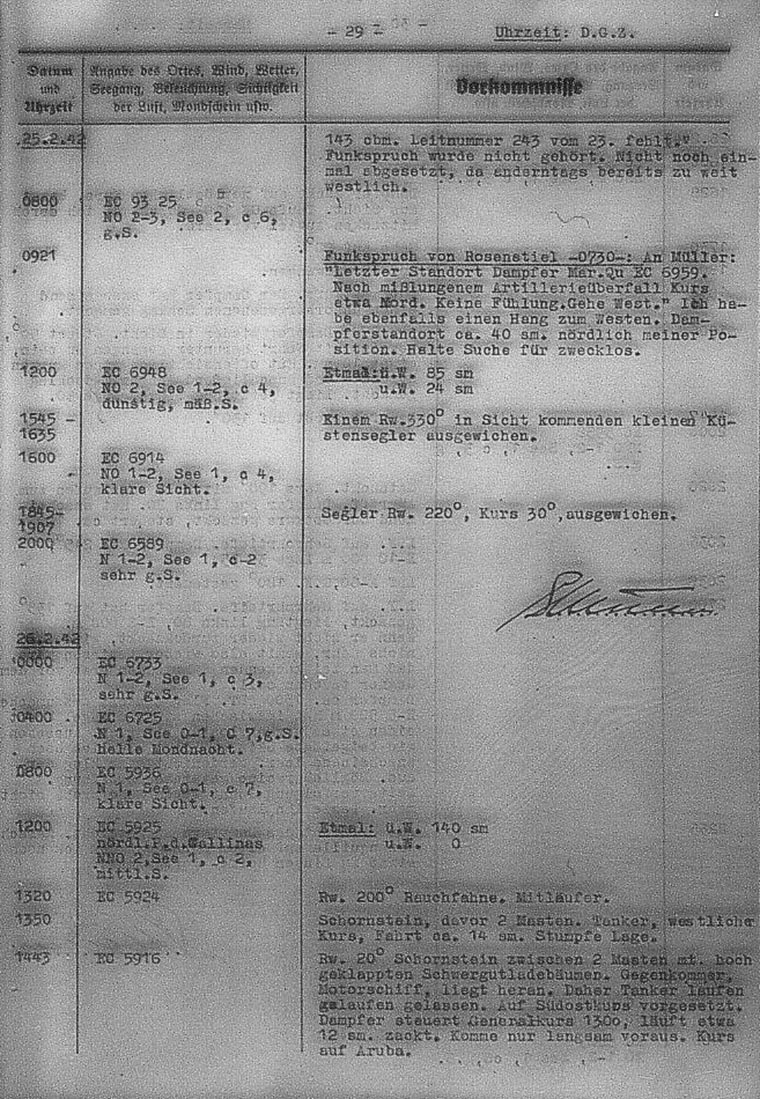 - 29 -
Uhrzeit: D.G.Z.
Datum
und
Uhrzeit
Angabe des Ortes, Wind, Wetter,
Seegang, Beleuchtung, Sichtigkeit
der Luft, Mondschein usw.
Vorkommnisse
25.2.42
143 cbm. Leitnummer 243 vom 23. fehlt.
Funkspruch wurde nicht gehört. Nicht noch ein-
mal abgesetzt, da anderntags bereits zu weit
westlich.
0800
EC 93 25
NO 2-3, See 2, c 6,
g.S.
0921
Funkspruch von Rosenstiel -0730-: An Müller:
"Letzter Standort Dampfer Mar.Qu EC 6959.
Nach mißlungenem Artillerieüberfall Kurs
etwa Nord. Keine Fühlung.Gehe West." Ich ha-
be ebenfalls einen Hang zum Westen. Dam-
pferstandort ca. 40 sm. nördlich meiner Po-
sition. Halte Suche für zwecklos.
1200
EC 6948
NO 2, See 1-2, c 4,
dunstig, mäß.S.
Etmal:ü.W. 85 sm
u.W. 24 sm
1545 -
1635
Einem Rw.330° in Sicht kommenden kleinen Kü-
stensegler ausgewichen.
1600
EC 6914
NO 1-2, See 1, c 4,
klare Sicht.
1845-
1907
Segler Rw. 220°, Kurs 30°,ausgewichen.
2000
EC 6589
N 1-2, See 1, c-2
sehr g.S.
26.2.42
0000
EC 6733
N 1-2, See 1, c 3,
sehr g.S.
0400
EC 6725
N 1, See 0-1, C 7,g.S.
Helle Mondnacht.
0800
EC 5936
N 1, See 0-1, c 7,
klare Sicht.
1200
EC 5925
nördl.P.d.Gallinas
NNO 2,See 1, c 2,
mittl.S.
Etmal: ü.W. 140 sm
u.W. 0
1320
EC 5924
Rw. 200° Rauchfahne. Mitläufer.
1350
Schornstein, davor 2 Masten. Tanker, westlicher
Kurs, Fahrt ca. 14 sm. Stumpfe Lage.
1443
EC 5916
Rw. 20° Schornstein zwischen 2 Masten mt. hoch
geklappten Schwergutladebäumen. Gegenkommer,
Motorschiff, liegt heran. Daher Tanker laufen
gelaufen gelassen. Auf Südostkurs vorgesetzt.
Dampfer steuert Generalkurs 130o, läuft etwa
12 sm. zackt. Komme nur langsam voraus. Kurs
auf Aruba.